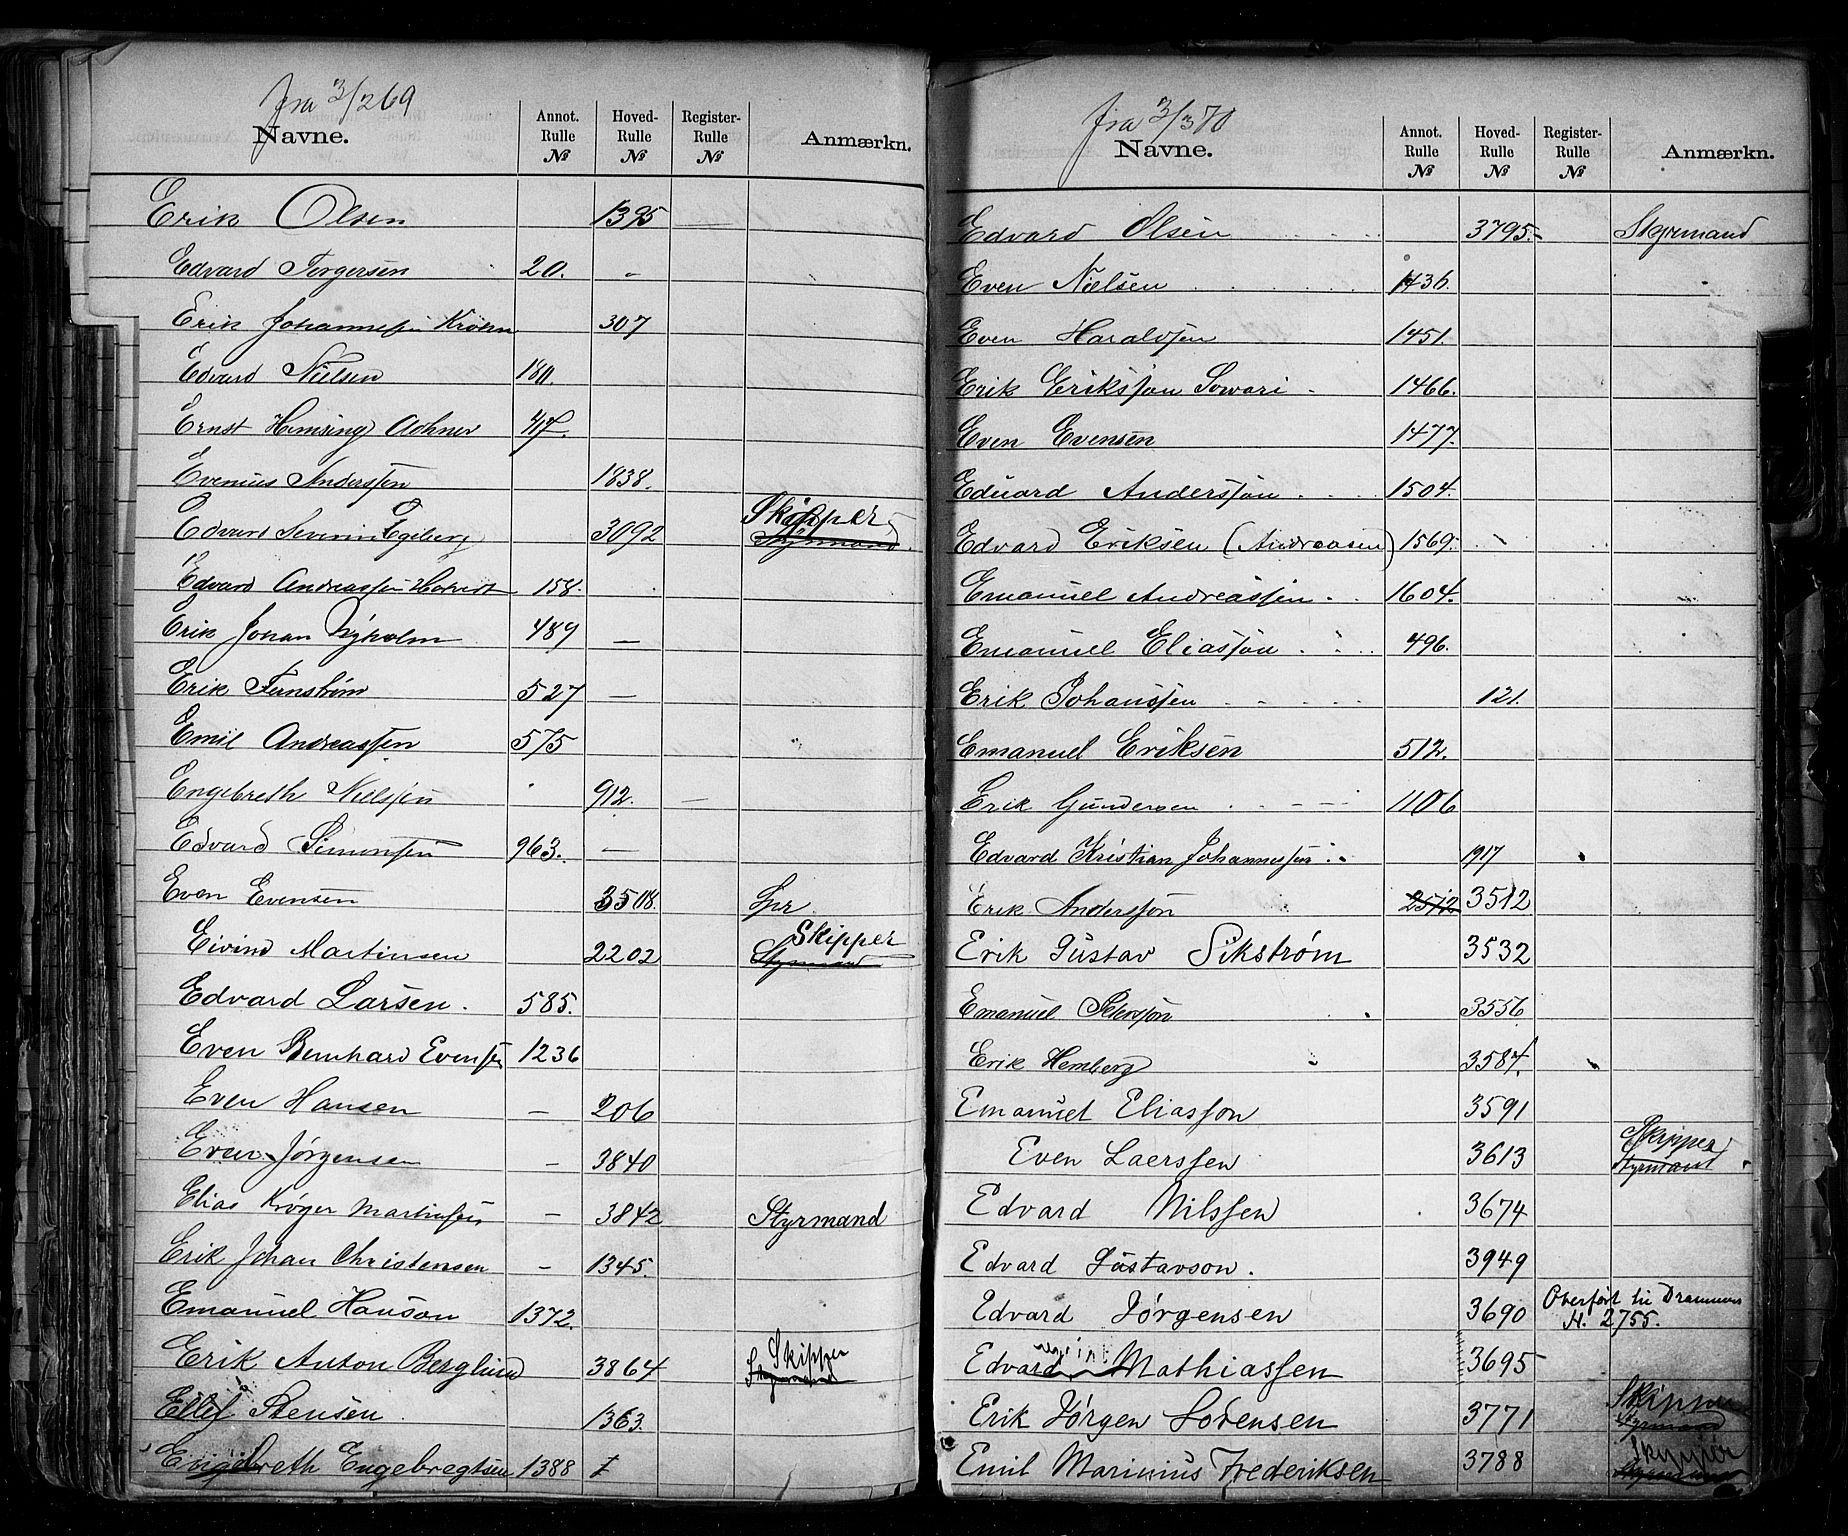 fra 3/269
Navne. Annot. Rulle № Hoved-Rulle № Register-Rulle № Anmærkn.
Erik Olsen 1395 —
Edvard Torgersen 20. -
Erik Johannesen Krohn 307
Edvard Nielsen 180.
Ernst Hemsing Achner 417.
Evenius Anderssen 1838.
Edvard Severin Egeberg 3092 Skipper Styrmand
Edvard Andreassen 158.
Erik Johan Nyholm 489 —
Erik Fernstrøm 527 —
Emil Andreassen 575
Engebreth Nielssen 912. —
Edvard Simonsen 963. —
Even Evensen 3508. Spr
Eivind Martinsen 2202 Skipper Styrmand
Edvard Larsen. 585.
Even Bernhard Evensen 1236
Even Hansen — 206
Even Jørgensen — 3840
Elias Krøger Martinsen — 3842 Styrmand
Erik Johan Christensen — 1345.
Emanuel Hanson 1372.
Erik Anton Berglund 3864 Skipper Styrmand
Ellef Stensen 1363.
Engebreth Engebregtsen 1388
fra 3/370
Navne. Annot. Rulle № Hoved-Rulle № Register-Rulle № Anmærkn.
Edvard Olsen 3795. Styrmand
Even Nielsen 1436.
Even Haraldsen 1451.
Erik Eriksson Sowari 1466.
Even Evensen 1477.
Eduard Andersson 1504.
Edvard Eriksen (Andreasen) 1569.
Emanuel Andreassen 1604.
Emanuel Eliasson 496.
Erik Johanssen 121.
Emanuel Eriksen 512.
Erik Gundersen 1106
Edvard Kristian Johannessen 1917
Erik Andersson 2512 3512
Erik Gustav Sikstrøm 3532
Emanuel Petersson 3556
Erik Hemberg 3584.
Emanuel Eliasson 3591
Even Laerssen 3613 Skipper Styrmand
Edvard Nilssen 3674
Edvard Gustavson. 3949
Edvard Jørgensen 3690 Overført til Drammen N. 2755.
Edvard Mathiassen 3695
Erik Jørgen Sorensen 3771 Skipper Styrmand
Emil Marinius Frederiksen 3788 Skipper Styrmand